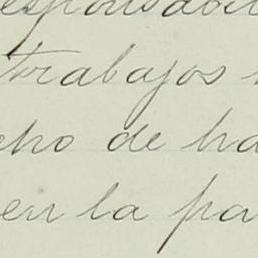 esponsabil
trabajos
cho de ha
en la pa